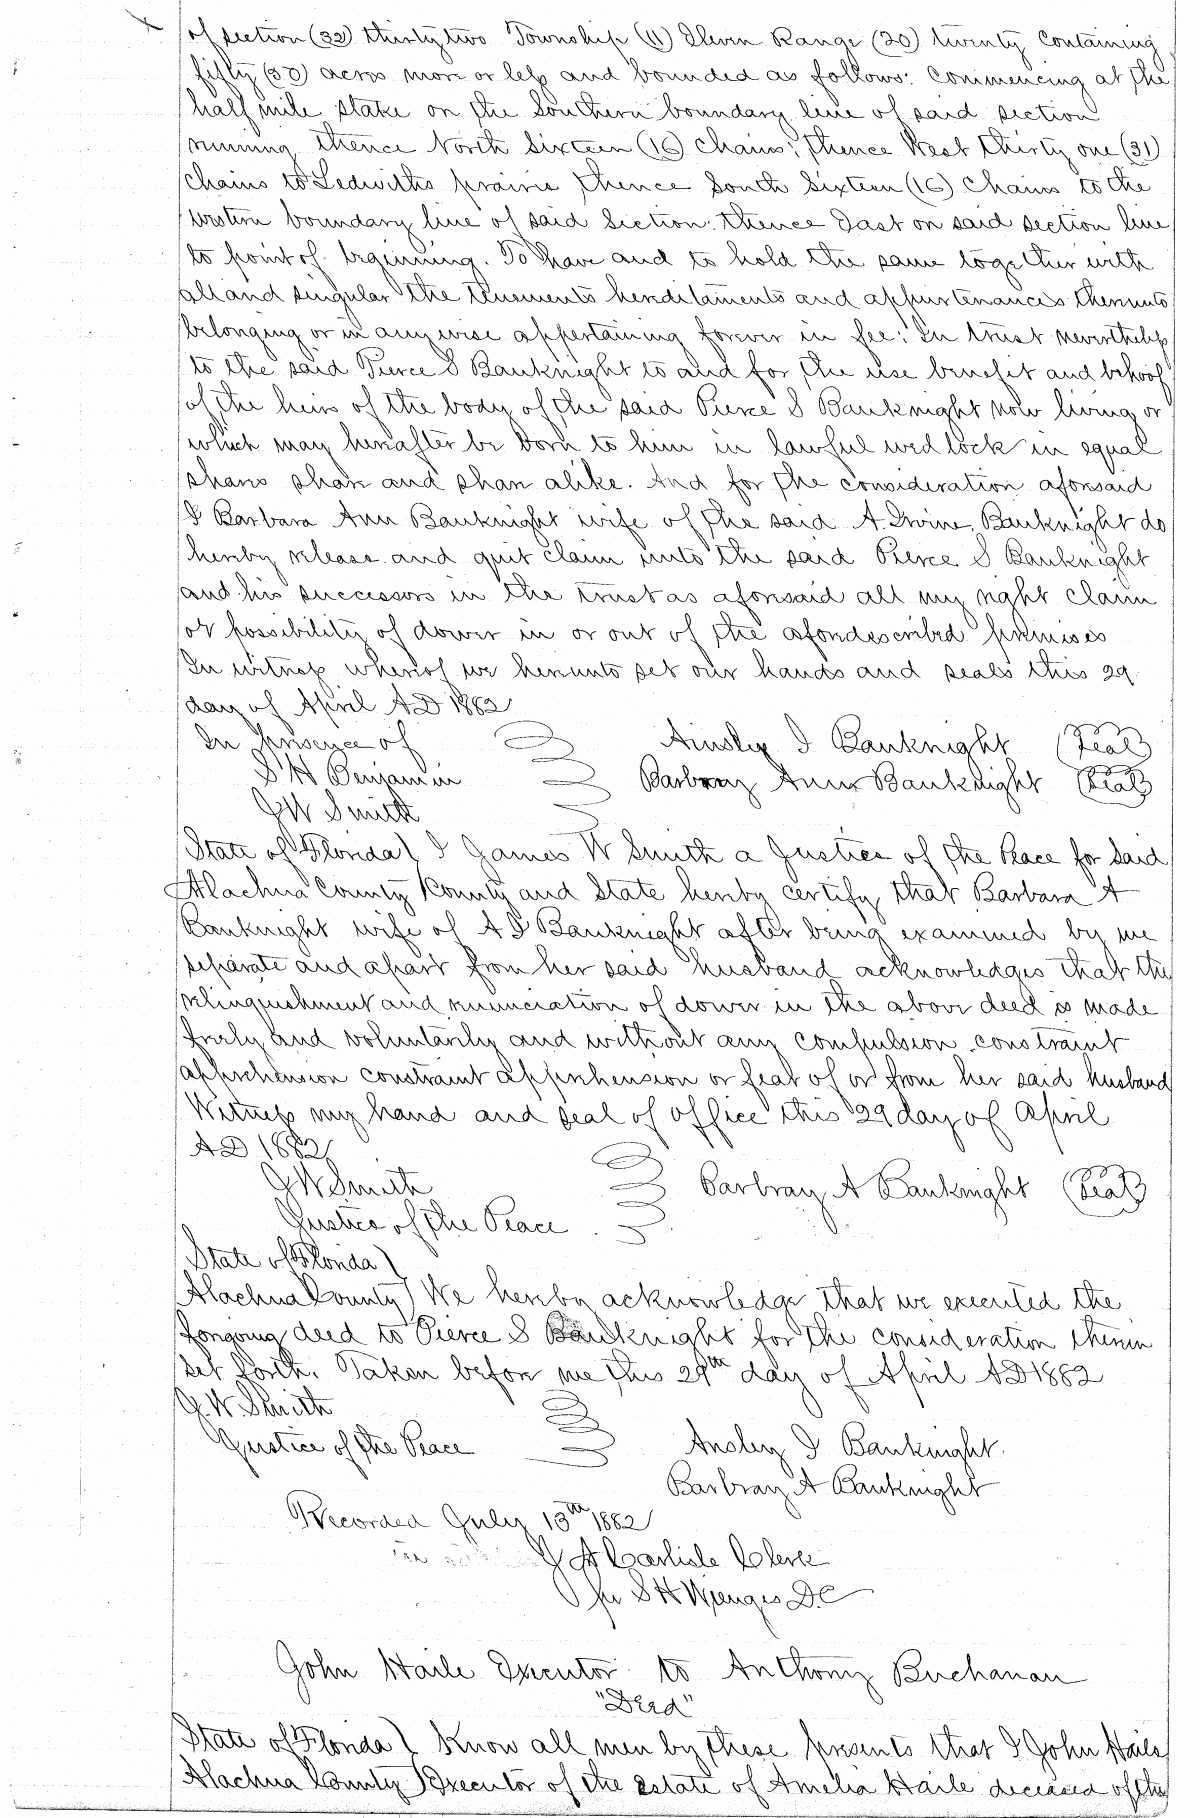 of section (32) thirty two Township (11) Eleven Range (20) twenty containing
fifty (50) acres more or less and bounded as follows: Commencing at the
half mile stake on the Southern boundary line of said section
running thence North Sixteen (16) Chains; thence West thirty one (31)
Chains to Ledwiths prairie thence South Sixteen (16) Chains to the
western boundary line of said Section: thence East on said section line
to point of beginning. To have and to hold the same together with
all and singular the tenements hereditaments and appurtenances thereunto
belonging or in any wise appertaining forever in fee: In trust nevertheless
to the said Pierce S Bauknight to and for the use benefit and behoof
of the heirs of the body of the said Pierce S Bauknight now living or
which may hereafter be born to him in lawful wedlock in equal
shares share and share alike. And for the consideration aforesaid
I Barbara Ann Bauknight wife of the said A. Irvine Bauknight do
hereby release and quit claim unto the said Pierce S Bauknight
and his successors in the trust as aforesaid all my right claim
or possibility of dower in or out of the aforedescribed premises
In witness whereof we hereunto set our hands and seals this 29
day of April AD 1882
In presence of Ainsley I Bauknight (Seal)
S H Benjamin Barbray Ann Bauknight (Seal)
J W Smith
State of Florida ) I James W Smith a Justice of the Peace for said
Alachua County ) County and State hereby certify that Barbara A
Bauknight wife of A I Bauknight after being examined by me
separate and apart from her said husband acknowledges that the
relinquishment and renunciation of dower in the above deed is made
freely and voluntarily and without any compulsion constraint
apprehension constraint apprehension or fear of or from her said husband
Witness my hand and seal of office this 29 day of April
AD 1882
J W Smith Barbray A Bauknight (Seal)
Justice of the Peace
State of Florida )
Alachua County ) We hereby acknowledge that we executed the
foregoing deed to Pierce S Bauknight for the consideration therein
set forth. Taken before me this 29th day of April AD 1882
J. W. Smith
Justice of the Peace Ansley I Bauknight.
Barbray A Bauknight
Recorded July 13th 1882
J A Carlisle Clerk
per S H Wienges D.C
John Haile Executor to Anthony Buchanan
"Deed"
State of Florida ) Know all men by these presents that I John Haile
Alachua County ) Executor of the estate of Amelia Haile deceased of the